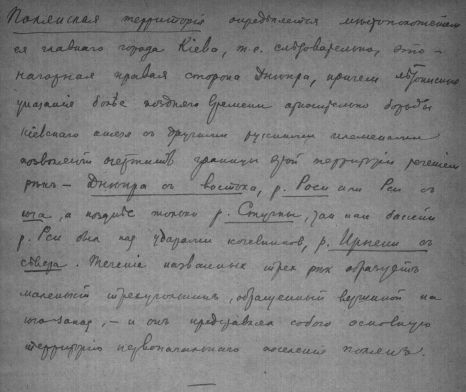 Полянская территорія опредѣляется мѣстоположеніем
ея главнаго города Кіева, т.е. слѣдовательно, это –
нагорная правая сторона Днѣпра, причем лѣтописныя
указанія болѣе поздняго времени относительно борьбы
кіевскаго князя съ другими русскими племенами
позволяютъ очертить границы этой территоріи теченіем
рѣкъ – Днѣпра съ востока, р. Роси или Рси съ
юга, а позднѣе только р. Стугны, так как бассейн
р. Рси был под ударами кочевников, р. Ирпени съ
сѣвера. Теченіе названных трех рѣк образуетъ
маленькій треугольникъ, обращенный вершиной на
юго-запад, – и онъ представлял собою основную
территорію первоначальнаго поселенія полянъ.